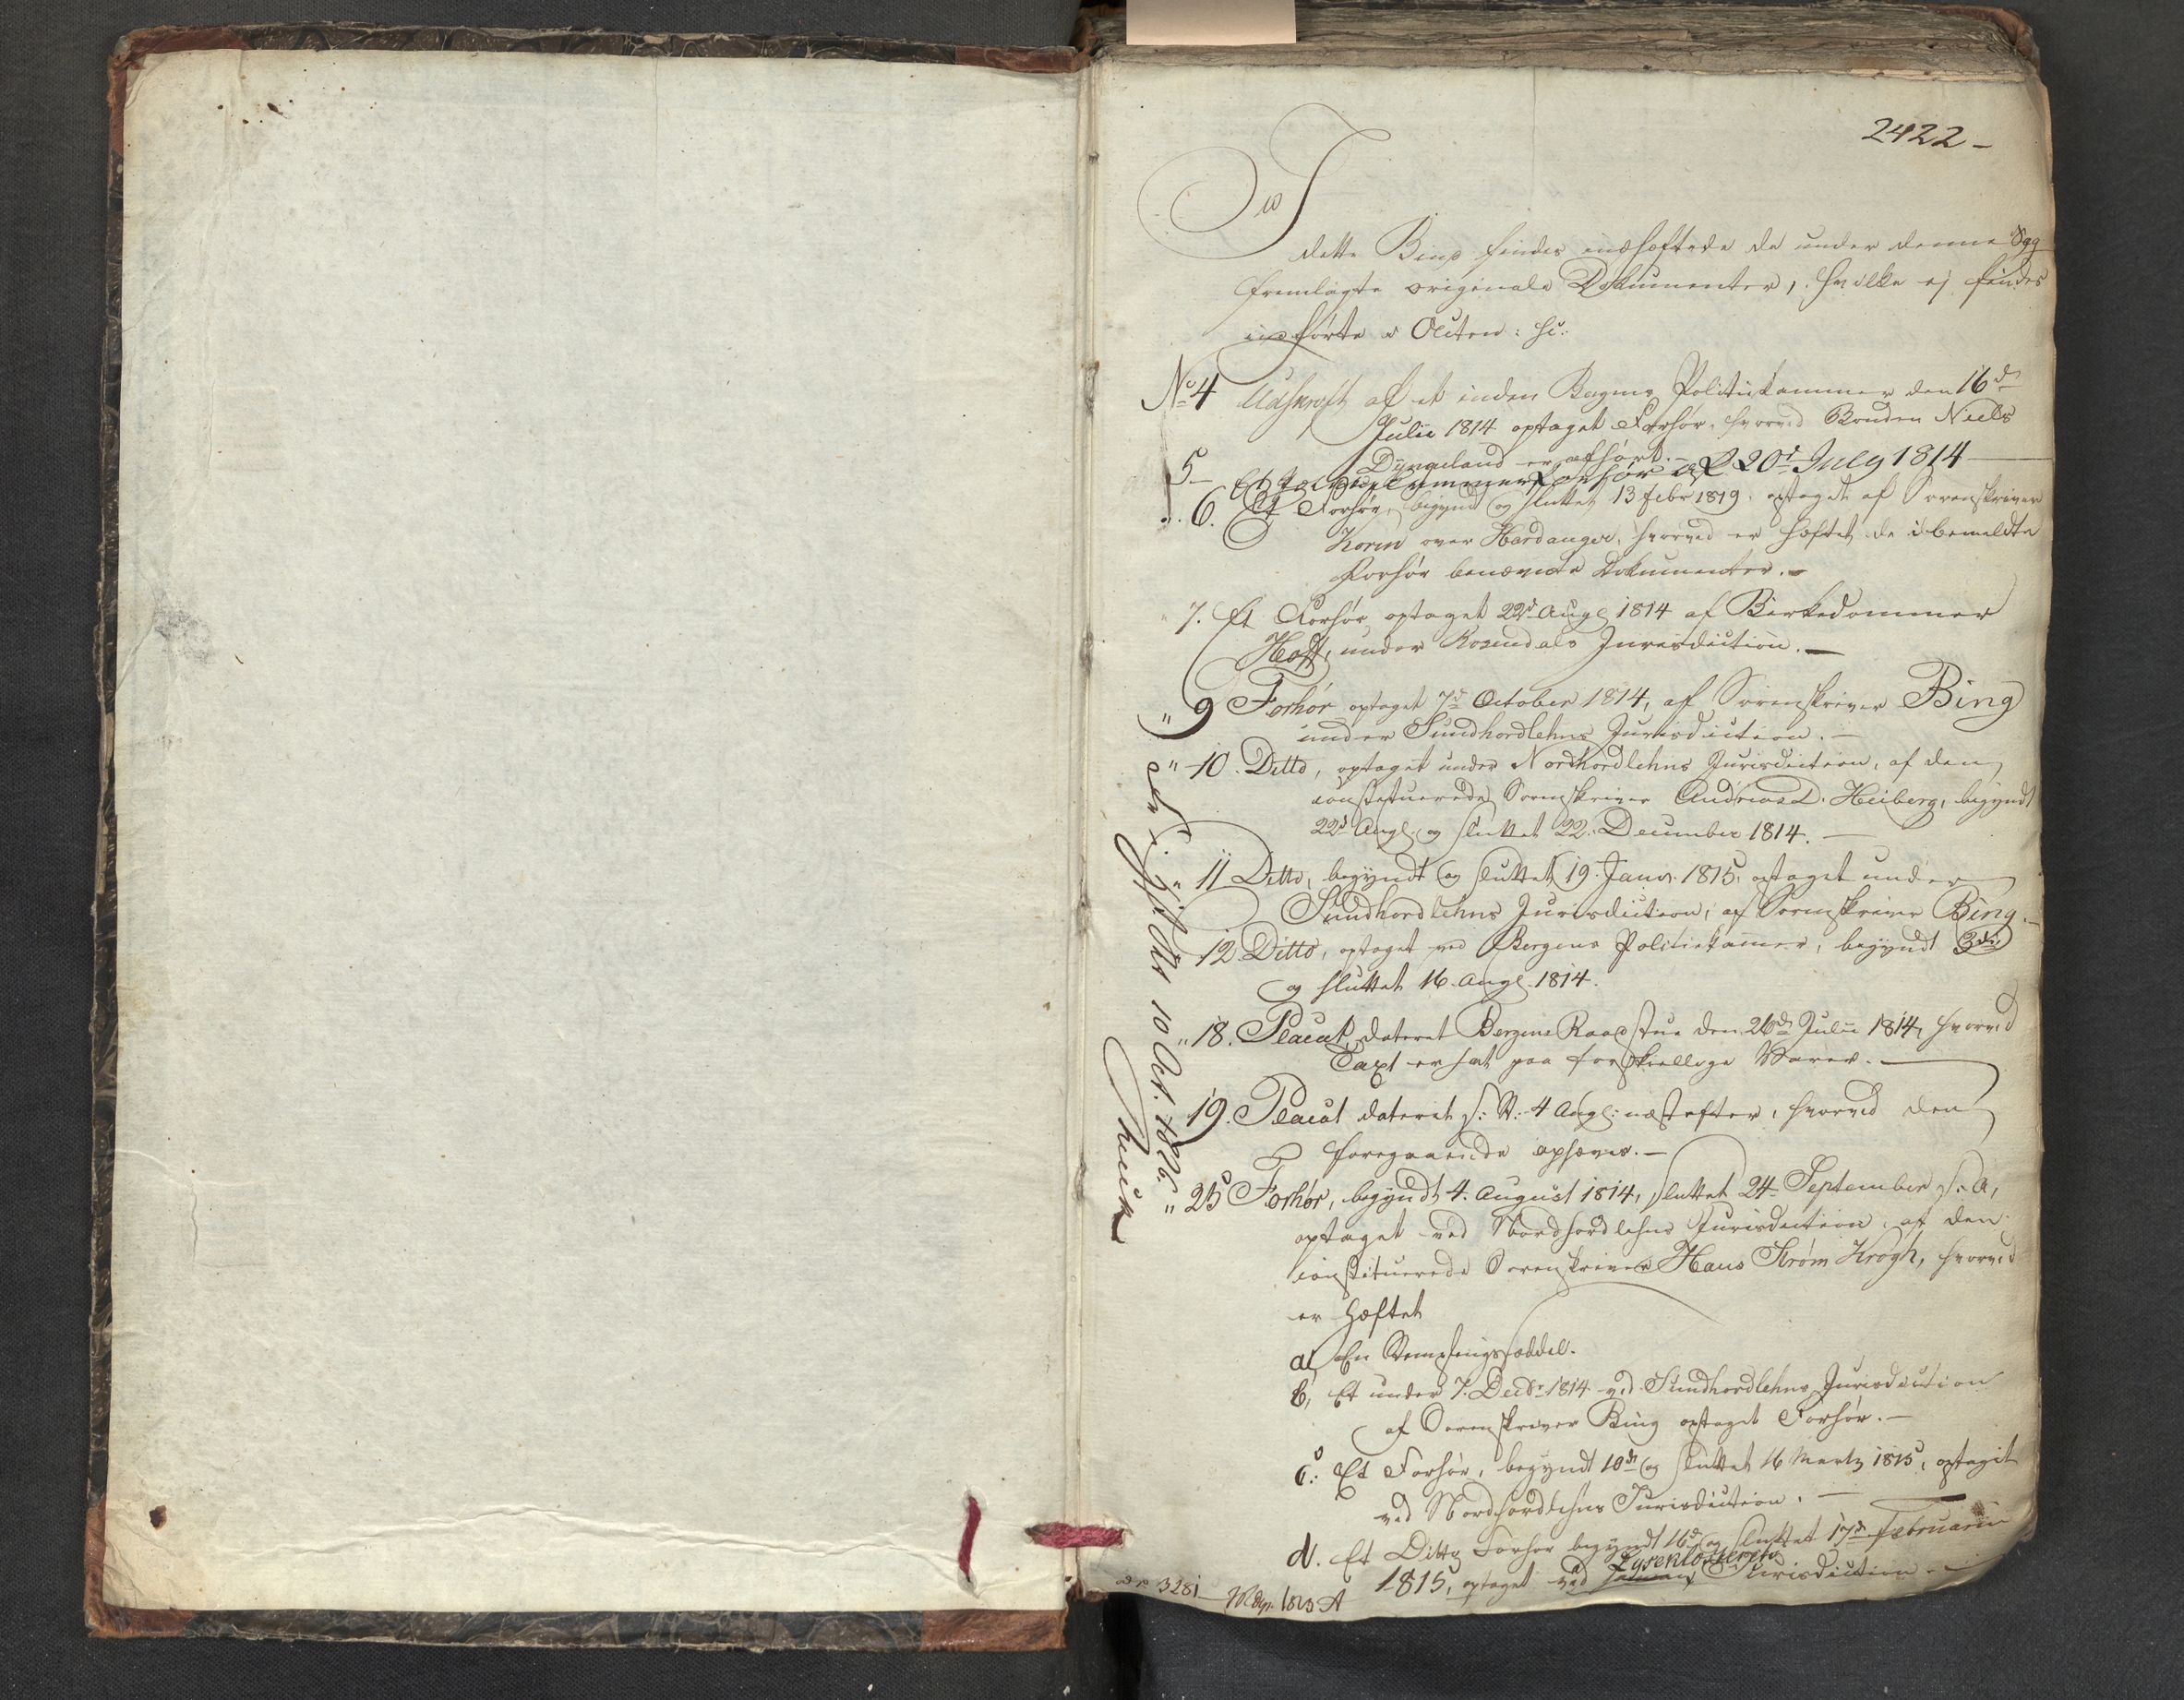 2422 –
I
dette Bind findes indhæftede de under denne Sag
fremlagte originale Dokumenter, hvilke ej findes
indførte i Acten: su:
No 4 Udskrift af et inden Bergens Politiekammer den 16de
Julii 1814 optaget Forhør, hvorved Bonden Niels
Dyngeland er afhørt. –
5 – Et Forhør af 20d July 1814
6. Et Forhør, begyndt og sluttet 13 febr 1819, optaget af Sorenskriver
Koren over Hardanger, hvorved er hæftet de i bemeldte
Forhør benævnte Dokumenter. –
" 7. Et Forhør optaget 22d Augs 1814 af Birkedommer
Hoff, under Rosendals Jurisdiction. –
" 9 Forhør optaget 7d October 1814, af Sorenskriver Bing
under Sundhordlehns Jurisdiction. –
" 10. Ditto, optaget under Nordhordlehns Jurisdiction, af den
constituerede Sorenskriver Andreas L. Heiberg, begyndt
22d Augs. og sluttet 22. December 1814. –
" 11 Ditto, begyndt og sluttet 19. Janr. 1815, optaget under
Sundhordlehns Jurisdiction, af Sorenskriver Bing. –
12. Ditto, optaget ved Bergens Politiekamer, begyndt 3die
og sluttet 16. Augs. 1814.
" 18. Placat, dateret Bergens Raadstue den 26de Julii 1814, hvorved
Taxt er sat paa forskiellige Varer. –
19. Placat dateret s: St: 4 Augs: næstefter, hvorved den
foregaaende ophæves. –
" 25 Forhør, begyndt 4. August 1814, sluttet 24. September s: A,
optaget ved Nordhordlehns Jurisdiction af den
constituerede Sorenskriver Hans Strøm Krogh, hvorved
er hæftet
a, En Stempingsseddel.
b, Et under 7. Decbr 1814 ved Sundhordlehns Jurisdiction
af Sorenskriver Bing optaget Forhør. –
c: Et Forhør, begyndt 10de og sluttet 16 Martz 1815, optaget
ved Nordhordlehns Jurisdiction. –
d. Et Ditto Forhør begyndt 16d og sluttet 17de Februarii
1815, optaget ved Lyseklosters Jurisdiction –
10 Oct. 1826.
3281
1823 A